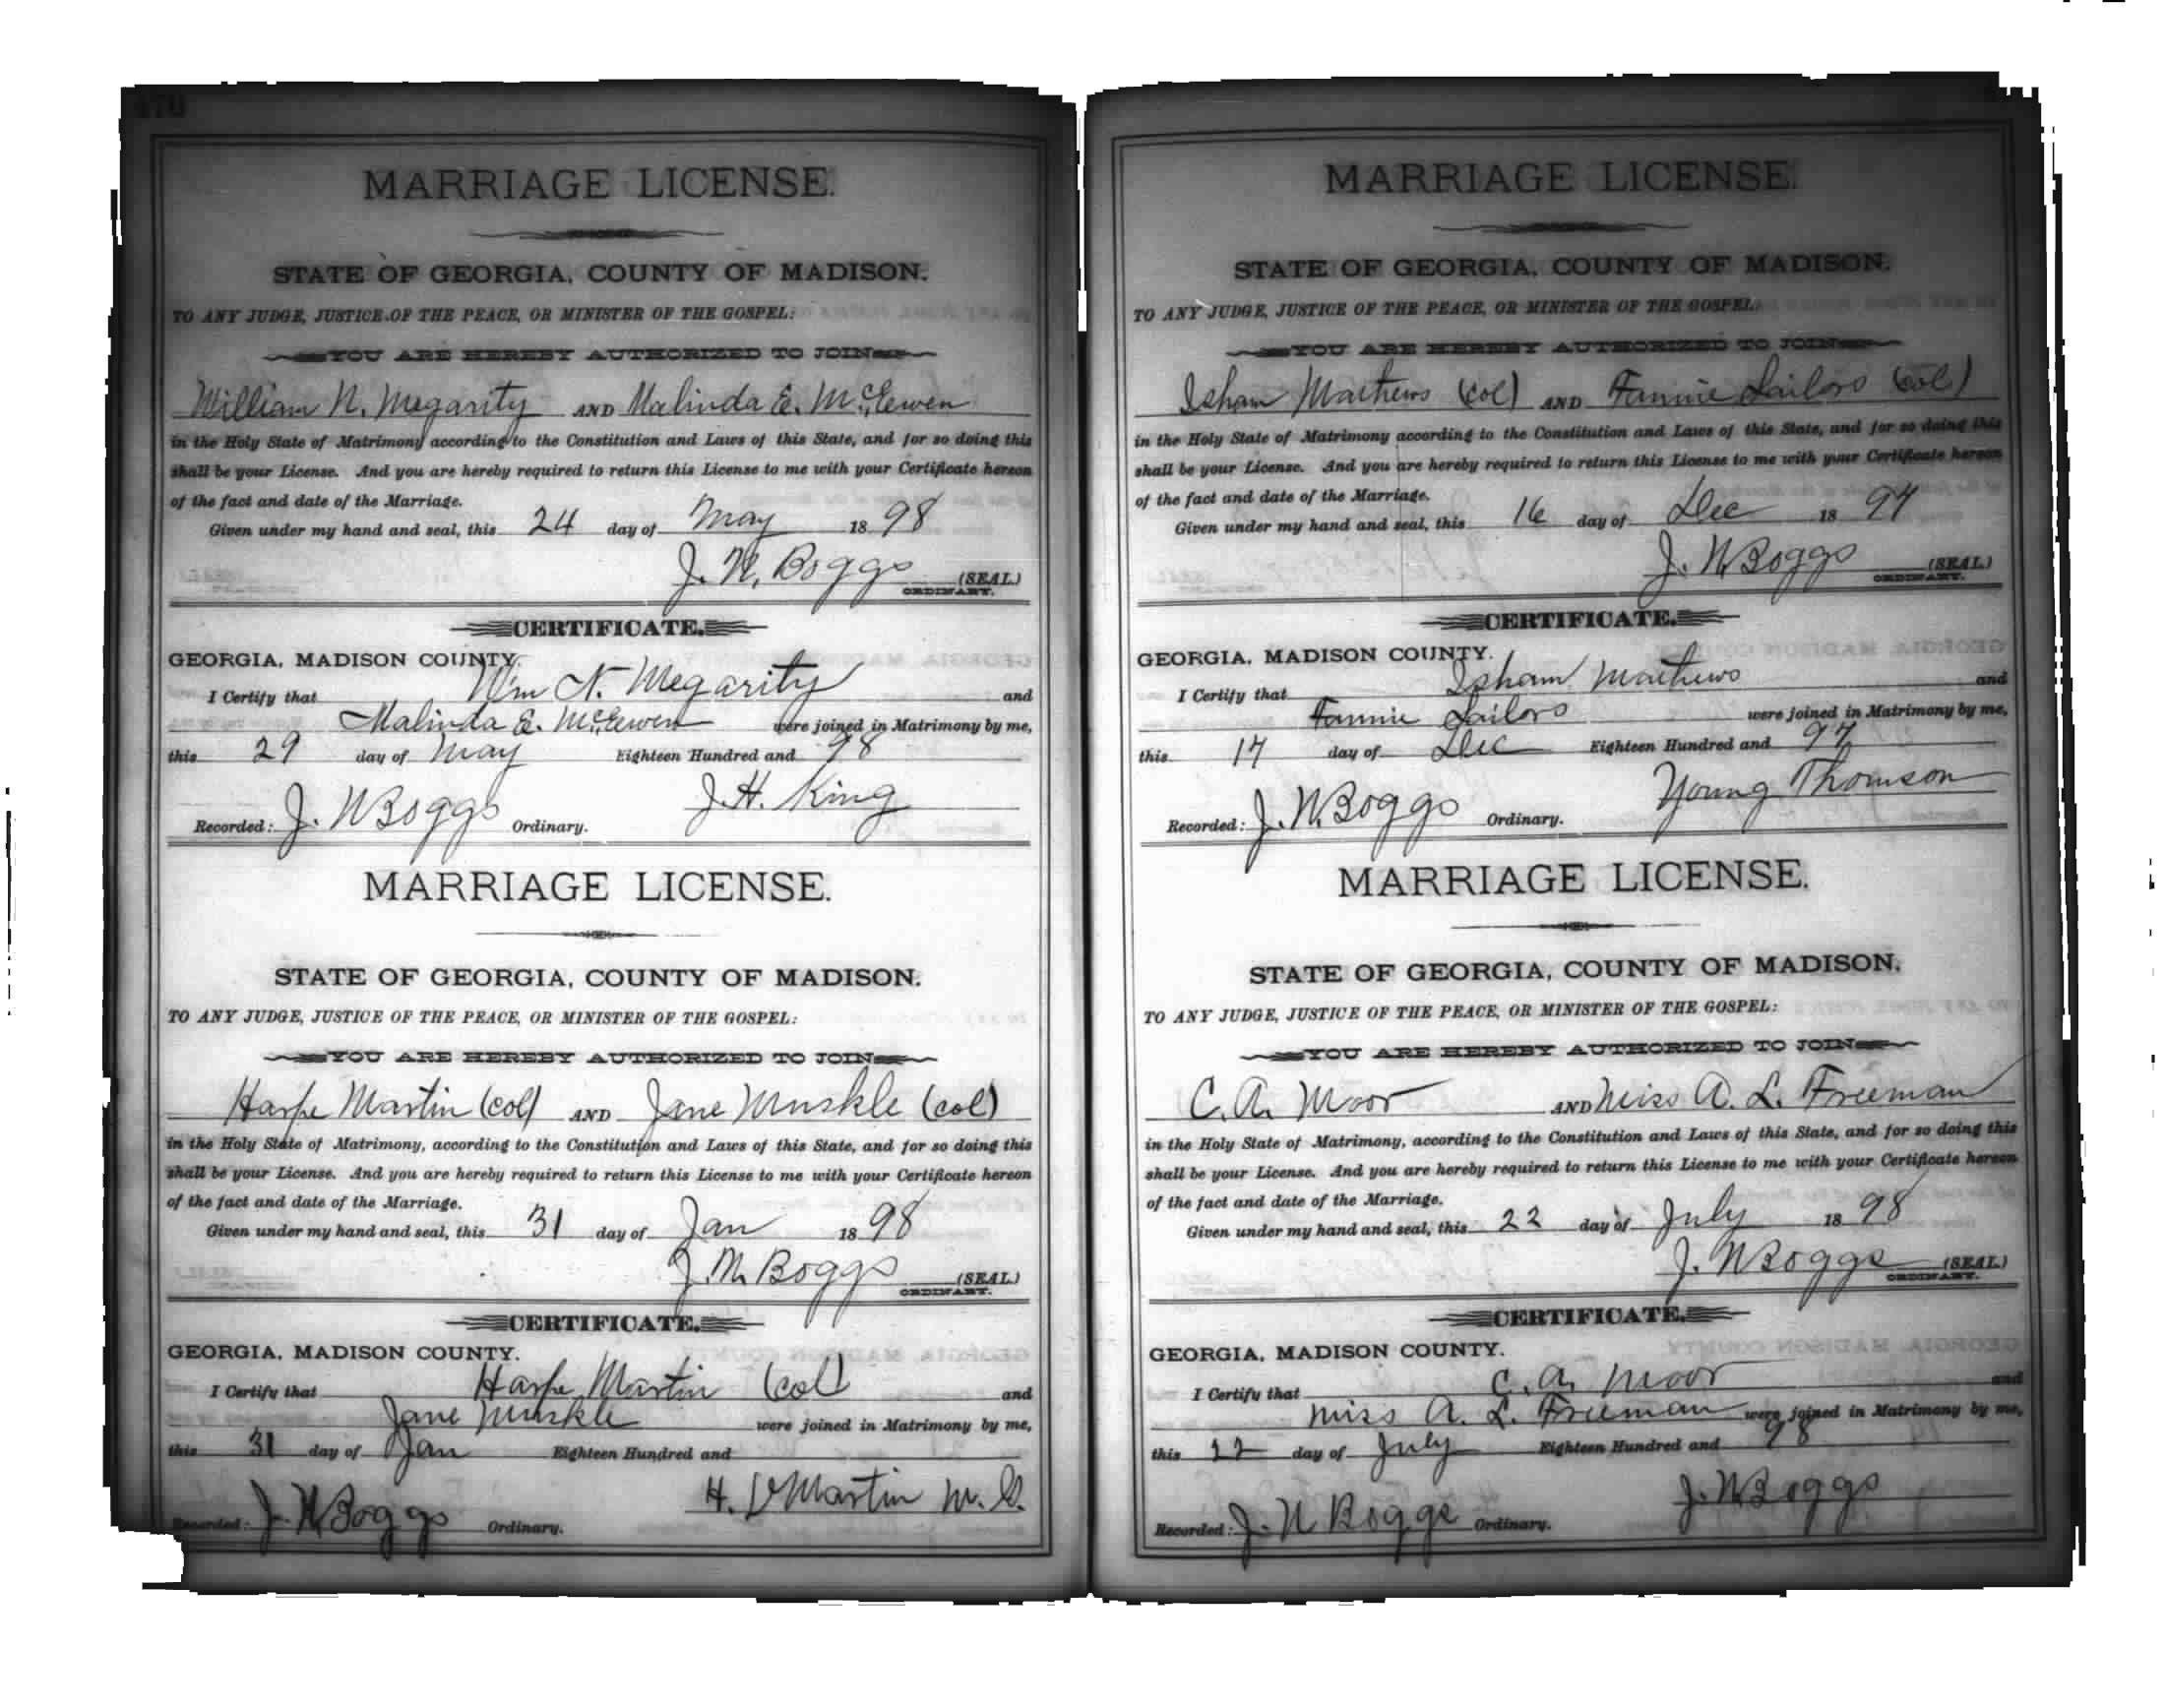 MARRIAGE LICENSE.
STATE OF GEORGIA, COUNTY OF MADISON.
TO ANY JUDGE, JUSTICE OF THE PEACE, OR MINISTER OF THE GOSPEL:
YOU ARE HEREBY AUTHORIZED TO JOIN
William N. Megarity AND Malinda E. McEewen
in the Holy State of Matrimony according to the Constitution and Laws of this State, and for so doing this
shall be your License. And you are hereby required to return this License to me with your Certificate hereon
of the fact and date of the Marriage.
Given under my hand and seal, this 24 day of May 1898
J. N. Boggs (SEAL)
ORDINARY.
CERTIFICATE.
GEORGIA, MADISON COUNTY.
I Certify that Wm N. Megarity and
Malinda E. McEewen were joined in Matrimony by me,
this 29 day of May Eighteen Hundred and 98
J. H. King
Recorded: J. N Boggs Ordinary.
MARRIAGE LICENSE.
STATE OF GEORGIA, COUNTY OF MADISON.
TO ANY JUDGE, JUSTICE OF THE PEACE, OR MINISTER OF THE GOSPEL:
YOU ARE HEREBY AUTHORIZED TO JOIN
Harpe Martin (col) AND Jane Muskle (col)
in the Holy State of Matrimony, according to the Constitution and Laws of this State, and for so doing this
shall be your License. And you are hereby required to return this License to me with your Certificate hereon
of the fact and date of the Marriage.
Given under my hand and seal, this 31 day of Jan 1898
J. N. Boggs (SEAL)
ORDINARY.
CERTIFICATE.
GEORGIA, MADISON COUNTY.
I Certify that Harpe Martin (col) and
Jane Muskle were joined in Matrimony by me,
this 31 day of Jan Eighteen Hundred and
H. Martin M. G.
Recorded: J. N Boggs Ordinary.
MARRIAGE LICENSE.
STATE OF GEORGIA, COUNTY OF MADISON.
TO ANY JUDGE, JUSTICE OF THE PEACE, OR MINISTER OF THE GOSPEL:
YOU ARE HEREBY AUTHORIZED TO JOIN
Isham Mathews (col) AND Fannie Sailors (col)
in the Holy State of Matrimony according to the Constitution and Laws of this State, and for so doing this
shall be your License. And you are hereby required to return this License to me with your Certificate hereon
of the fact and date of the Marriage.
Given under my hand and seal, this 16 day of Dec 1897
J. N Boggs (SEAL)
ORDINARY.
CERTIFICATE.
GEORGIA, MADISON COUNTY.
I Certify that Isham Mathews and
Fannie Sailors were joined in Matrimony by me,
this 17 day of Dec Eighteen Hundred and 97
Young Thomson
Recorded: J. N. Boggs Ordinary.
MARRIAGE LICENSE.
STATE OF GEORGIA, COUNTY OF MADISON.
TO ANY JUDGE, JUSTICE OF THE PEACE, OR MINISTER OF THE GOSPEL:
YOU ARE HEREBY AUTHORIZED TO JOIN
C. A. Moor AND Miss A. L. Freeman
in the Holy State of Matrimony, according to the Constitution and Laws of this State, and for so doing this
shall be your License. And you are hereby required to return this License to me with your Certificate hereon
of the fact and date of the Marriage.
Given under my hand and seal, this 22 day of July 1898
J. N Boggs (SEAL)
ORDINARY.
CERTIFICATE.
GEORGIA, MADISON COUNTY.
I Certify that C. A. Moor and
Miss A. L. Freeman were joined in Matrimony by me,
this 22 day of July Eighteen Hundred and 98
J. N Boggs
Recorded: J. N Boggs Ordinary.